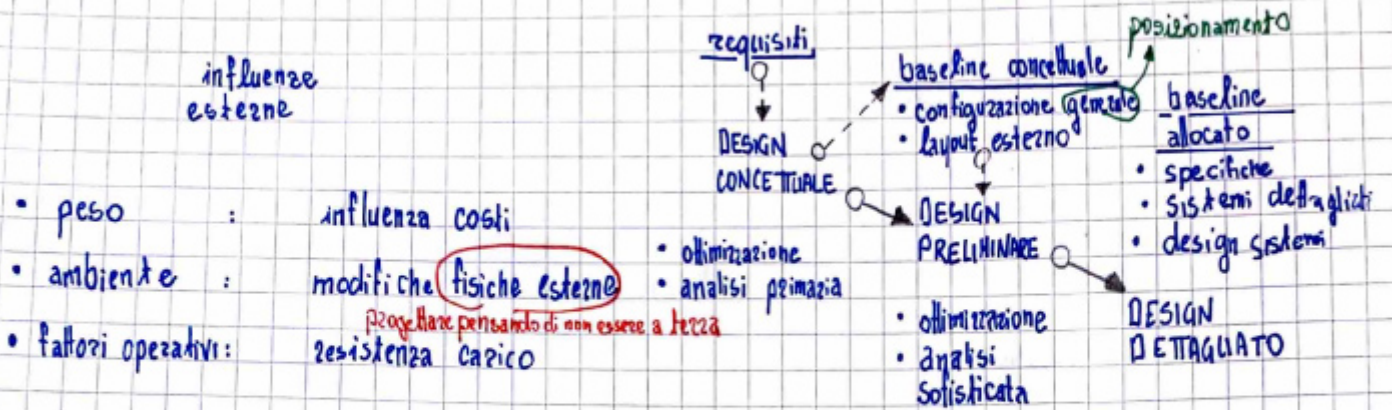 influenze
esterne
• peso : influenza costi
• ambiente : modifiche fisiche esterne
progettare pensando di non essere a terra
• fattori operativi: resistenza carico
requisiti
DESIGN
CONCETTUALE
• ottimizzazione
• analisi primaria
baseline concettuale
• configurazione generale
• layout esterno
posizionamento
DESIGN
PRELIMINARE
• ottimizzazione
• analisi
sofisticata
baseline
allocato
• specifiche
• sistemi dettagliati
• design sistemi
DESIGN
DETTAGLIATO